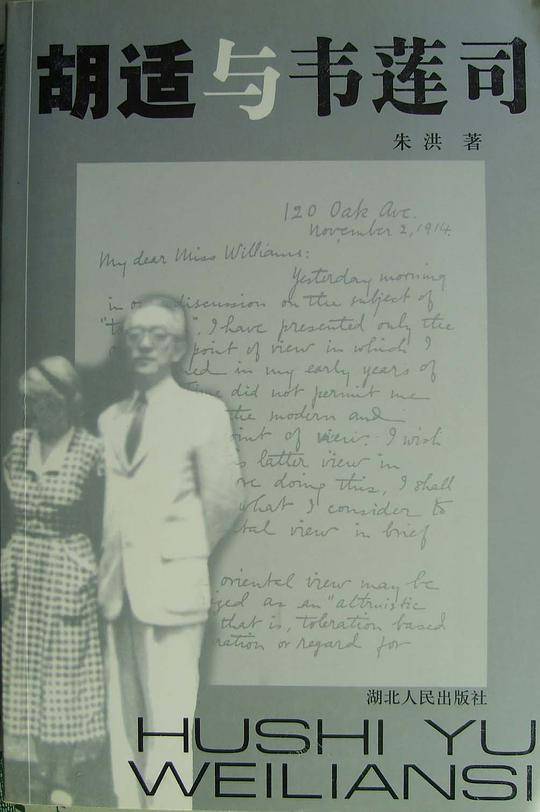 胡适与韦莲司
朱洪 著
120 Oak Ave.
November 2, 1914.
My dear Miss Williams:
Yesterday morning
in discussion on the subject of
". I have presented only the
point of view in which I
in my early years of
did not permit me
the modern and
point of view. I wish
latter view in
doing this, I shall
what I consider to
view in brief
oriental view may be
as an "altruistic
that is, toleration based
or regard for
湖北人民出版社
HUSHI YU
WEILIANSI